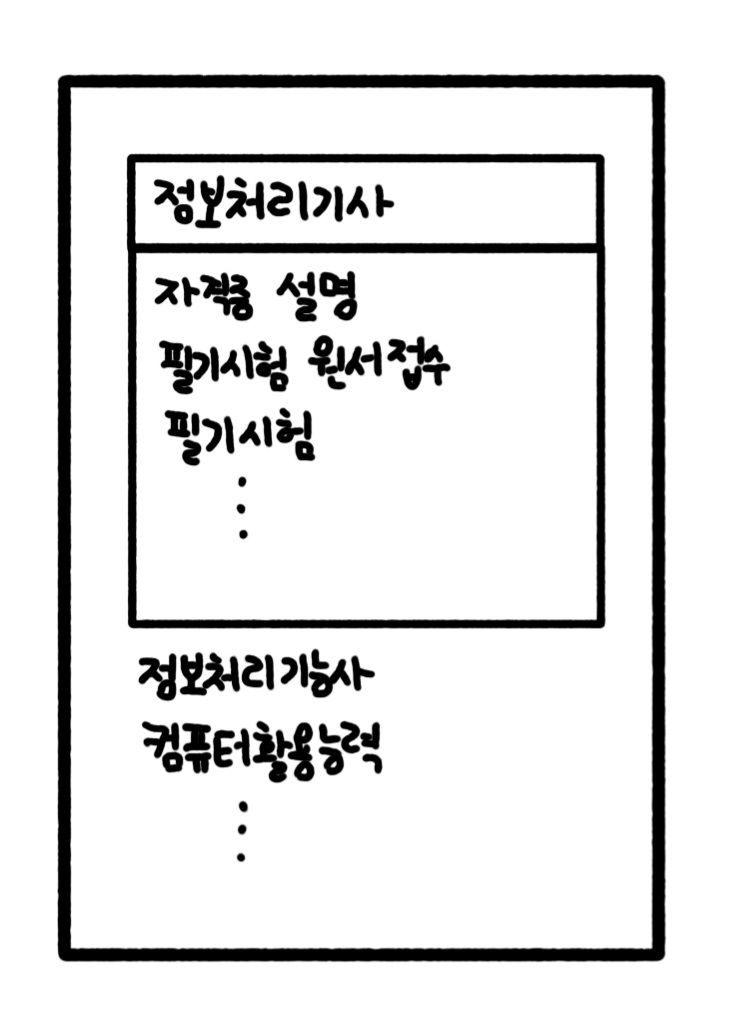 정보처리기사
자격증 설명
필기시험 원서접수
필기시험
정보처리기능사
컴퓨터활용능력